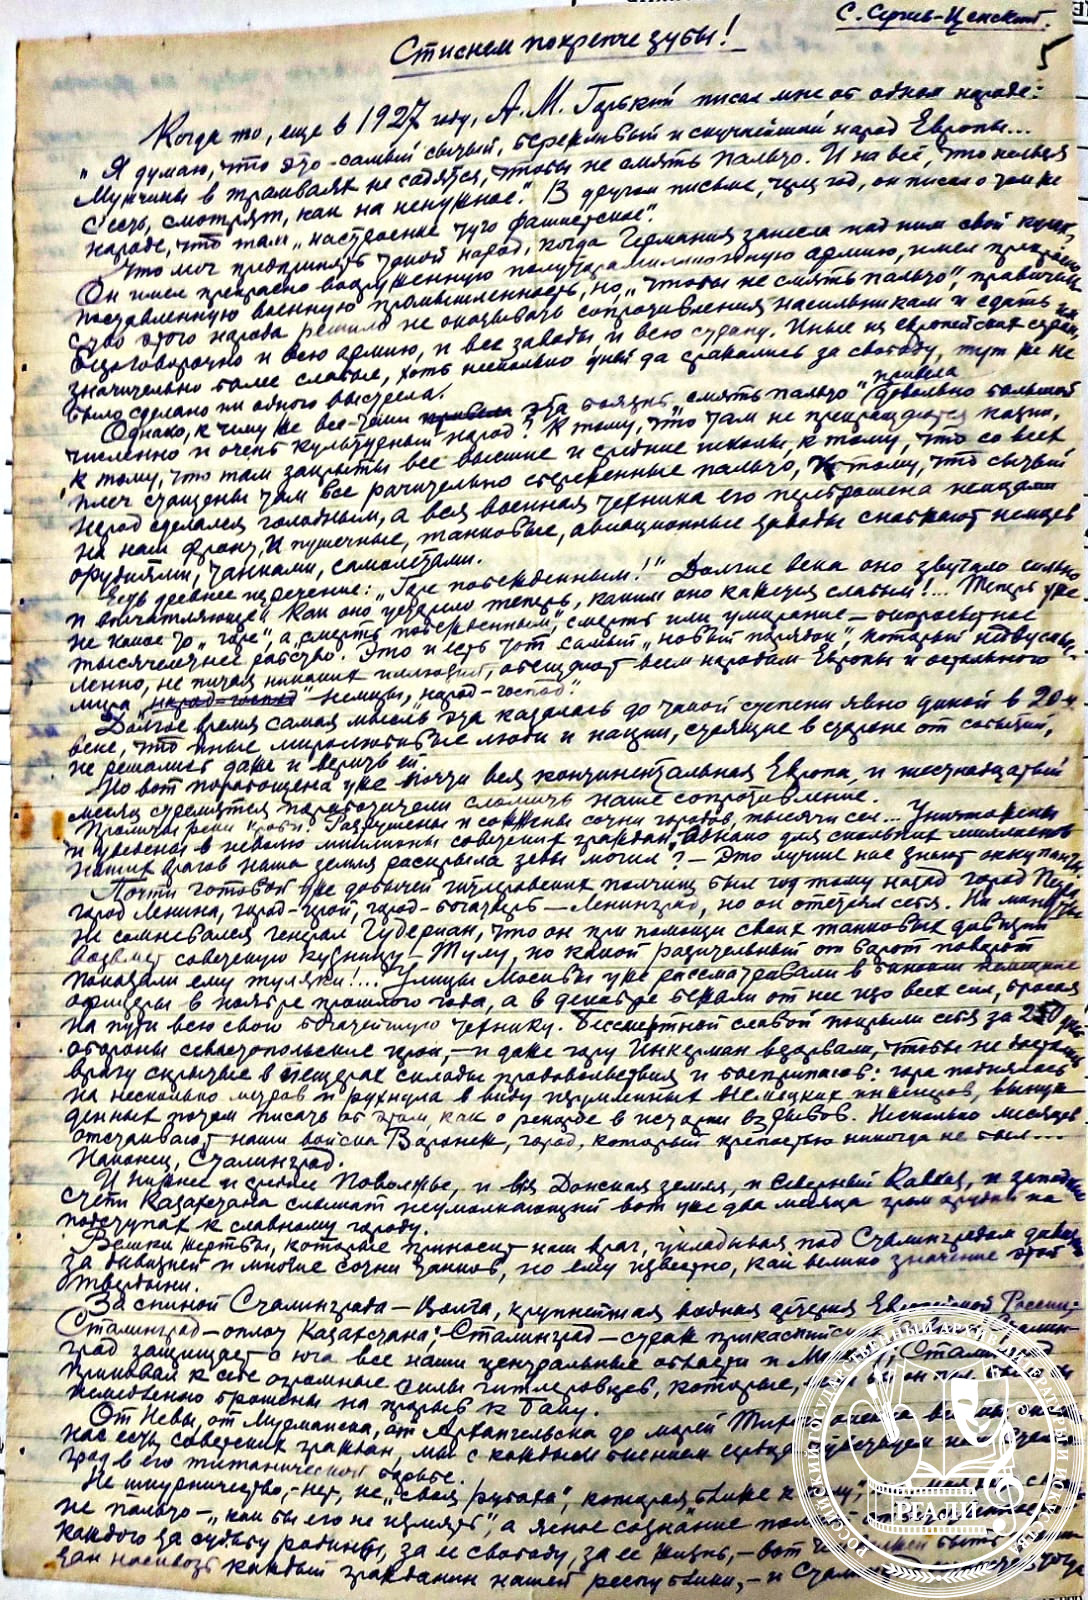 С. Сергеев-Ценский.
5
Стиснем покрепче зубы!
Когда то, еще в 1927 году, А. М. Горький писал мне об одном народе:
„Я думаю, что это – самый сытый, бережливый и скучнейший народ Европы...
Мужчины в трамваях не садятся, чтобы не смять пальто. И на всё, что нельзя
съесть, смотрят, как на ненужное". В другом письме, через год, он писал о том же
народе, что там „настроение чуть фашистское".
Что мог предпринять такой народ, когда Германия занесла над ним свой кулак,
Он имел прекрасно вооруженную полуторамиллионную армию, имел прекрасно
поставленную военную промышленность, но, „чтобы не смять пальто", правитель
ство этого народа решило не оказывать сопротивления насильникам и сдать им
безоговорочно и всю армию, и все заводы, и всю страну. Иные из европейских стран,
значительно более слабые, хоть несколько дней да сражались за свободу, тут же не
было сделано ни одного выстрела.
Однако, к чему же все-таки привела эта боязнь „смять пальто" привела довольно большой
численно и очень культурный народ? К тому, что там не прекращаются казни,
к тому, что там закрыты все высшие и средние школы, к тому, что со всех
плеч стащены там все рачительно сбереженные пальто, к тому, что сытый
народ сделался голодным, а вся военная техника его переброшена немцами
на наш фронт, и пушечные, танковые, авиационные заводы снабжают немцев
орудиями, танками, самолетами.
Есть древнее изречение: „Горе побежденным!" Долгие века оно звучало сильно
и впечатляюще. Как оно устарело теперь, каким оно кажется слабым!... Теперь уже
не какое то „горе", а „смерть побежденным", смерть или умирание – беспросветное
тысячелетнее рабство. Это и есть тот самый „новый порядок", который недвусмыс-
ленно, не питая никаких иллюзий, обещают всем народам Европы и остального
мира „народ-господ" – немцы, „народ-господ".
Долгое время самая мысль эта казалась до такой степени явно дикой в 20-м
веке, что иные миролюбивые люди и нации, стоящие в стороне от событий,
не решались даже и верить ей.
Но вот порабощена уже почти вся континентальная Европа, и шестнадцатый
месяц стремятся поработители сломить наше сопротивление.
Пролиты реки крови! Разрушены и сожжены сотни городов, тысячи сел... Уничтожены
и уведены в неволю миллионы советских граждан. Однако для скольких миллионов
наших врагов наша земля раскрыла зевы могил? – Это лучше нас знают оккупанты.
Почти готовой уже добычей гитлеровских полчищ был год тому назад город Петра,
город Ленина, город-герой, город-богатырь – Ленинград, но он отстоял себя. Ни минуты
не сомневался генерал Гудериан, что он при помощи своих танковых дивизий
возьмет советскую кузницу – Тулу, но какой разительный от ворот поворот
показали ему туляки!... Улицы Москвы уже рассматривали в бинокли немецкие
офицеры в ноябре прошлого года, а в декабре бежали от нее изо всех сил, бросая
на пути всю свою богатейшую технику. Бессмертной славой покрыли себя за 250 дней
обороны севастопольские герои, – и даже гору Инкерман взорвали, чтобы не достались
врагу скрытые в пещерах склады продовольствия и боеприпасов: гора поднялась
на несколько метров и рухнула в виду изумленных немецких инженеров, вынуж
денных потом писать об этом, как о рекорде в истории взрывов. Несколько месяцев
отстаивают наши войска Воронеж, город, который крепостью никогда не был...
Наконец, Сталинград.
И нижнее и среднее Поволжье, и вся Донская земля, и Северный Кавказ, и западные
степи Казахстана слышат неумолкающий вот уже два месяца гром орудий на
подступах к славному городу.
Велики жертвы, которые приносит наш враг, укладывая под Сталинградом дивизию
за дивизией и многие сотни танков, но ему известно, как велико значение этой
твердыни.
За спиной Сталинграда – Волга, крупнейшая водная артерия Европейской России;
Сталинград – оплот Казахстана; Сталинград – страж
град защищает с юга все наши центральные области и
приковал к себе огромные силы гитлеровцев, которые,
немедленно брошены на прорыв к Баку.
От Невы, от Мурманска, от Архангельска до морей
нас есть советских граждан, мы с каждым биением сердца
град в его титанической борьбе.
Не шкурничество, – нет, не „своя рубаха", которая ближе к телу,
не пальто – „как бы его не измять", а ясное сознание
каждого за судьбу родины, за её свободу, за ее жизнь, – вот
зан насквозь каждый гражданин нашей республики, – и
РОССИЙСКИЙ ГОСУДАРСТВЕННЫЙ АРХИВ ЛИТЕРАТУРЫ И ИСКУССТВА
РГАЛИ